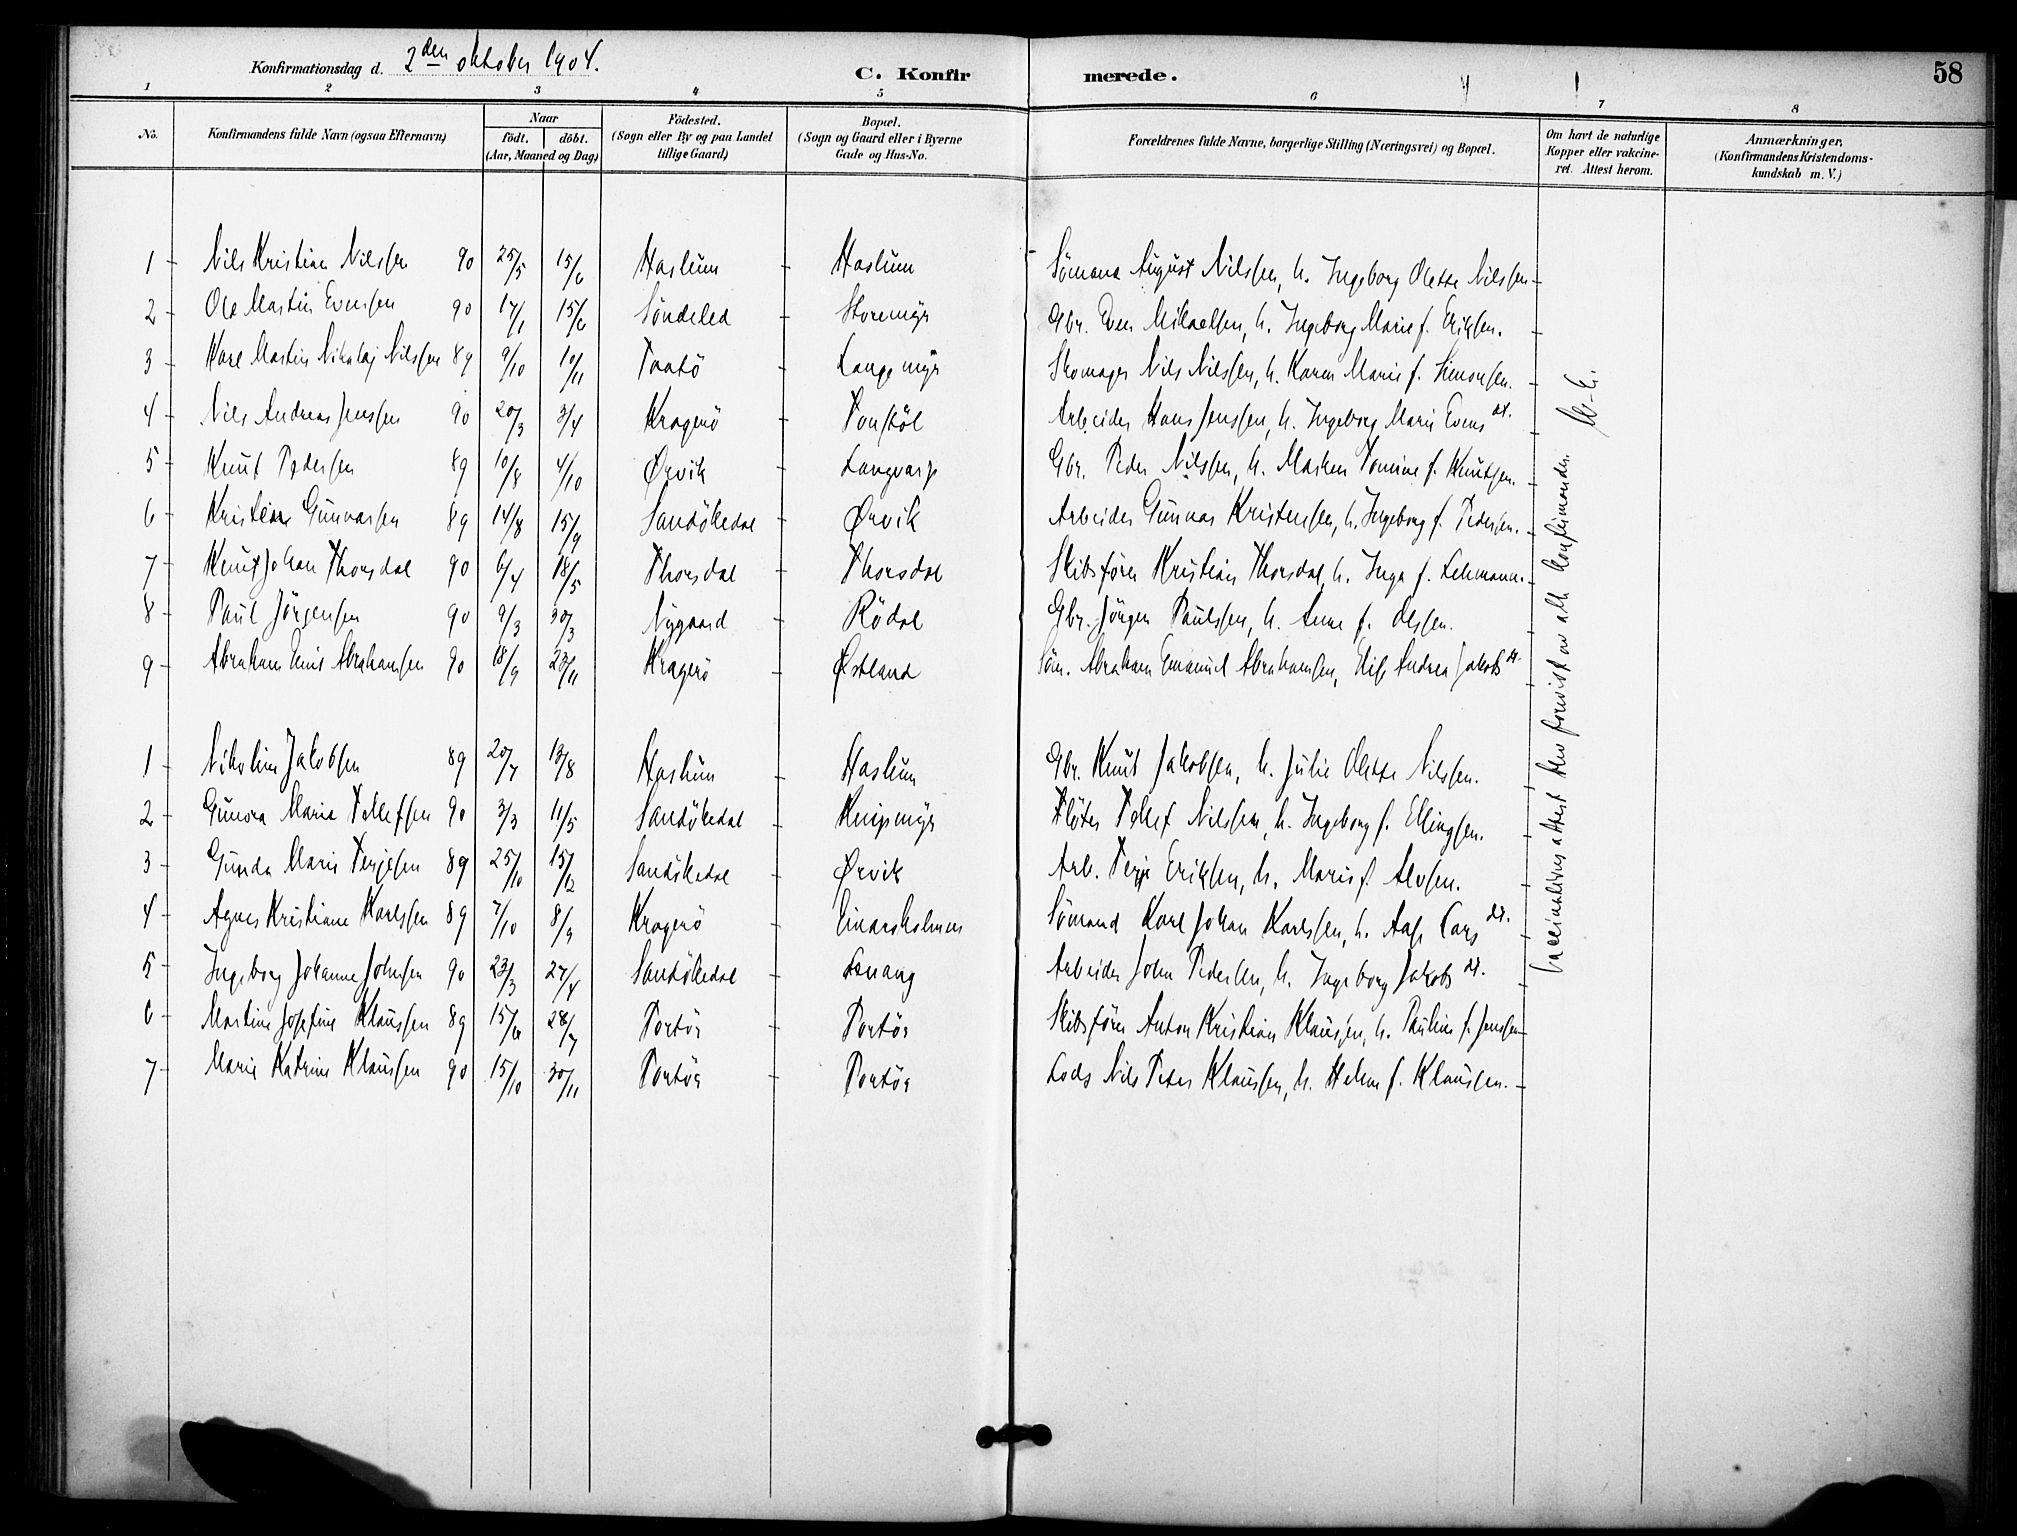 Konfirmationsdag d. 2den oktober 1904. C. Konfirmerede. 58
1 2 3 4 5 6 7 8
No. Konfirmandens fulde Navn (ogsaa Efternavn) Naar födt. döbt. (Aar, Maaned og Dag) Födested. (Sogn eller By og paa Landet tillige Gaard) Bopæl. (Sogn og Gaard eller i Byerne Gade og Hus-No. Forældrenes fulde Navne, borgerlige Stilling (Næringsvei) og Bopæl. Om havt de naturlige Kopper eller vakcineret. Attest herom. Anmærkninger, (Konfirmandens Kristendomskundskab m. V.)
1 Nils Kristian Nilssen 90 25/5 15/6 Haslum - Haslum - Sömand August Nilssen, h. Ingeborg Olette Nilssen
2 Ole Martin Evensen 90 17/1 15/6 Söndeled - Storemyr Gbr. Even Mikaelsen, h. Ingeborg Marie f. Eriksen.
3 Karl Martin Nikolaj Nilssen 89 9/10 10/11 Taatö - Langemyr Skomager Nils Nilssen, h. Karen Marie f. Simonsen.
4 Nils Andreas Jenssen 90 20/3 3/4 Kragerö - Tonstöl Arbeider Hans Jenssen, h. Ingeborg Marie Evens dt.
5 Knut Pedersen 89 10/8 4/10 Ørvik - Gbr. Peder Nilssen, h. Maren Tomine f. Knutsen.
6 Kristian Gunvarsen 89 14/8 15/9 Sandökedal - Ørvik Arbeider Gunvar Kristensen, h. Ingeborg f. Pedersen.
7 Knut Johan Thorsdal 90 6/4 18/5 Thorsdal - Thorsdal Skibsförer Kristian Thorsdal, h. Inga f. Lehmann.
8 Paul Jörgensen 90 9/3 30/3 Nygaard - Rödal Gbr. Jörgen Paulssen, h. Anne f. Olssen.
9 Abraham Emil Abrahamsen 90 18/9 23/11 Kragerö - Østland Söm. Abraham Emanuel Abrahamsen, Elise Andrea Jakobs dt.
1 Nikoline Jakobsen 89 20/7 13/8 Haslum - Haslum Gbr. Knut Jakobsen, h. Julie Olette Nilssen.
2 Gunora Marie Tellefsen 90 3/3 11/5 Sandökedal - Knipmyr Flöter Tellef Nilssen, h. Ingeborg f. Ellingsen.
3 Gunda Marie Terjesen 89 25/10 15/12 Sandökedal - Ørvik Arb. Terje Eriksen, h. Marie f. Alvsen.
4 Agnes Kristiane Karlssen 89 7/10 8/9 Kragerö - Einarsholmen Sömand Karl Johan Karlssen, h. Aase Lars dt.
5 Ingeborg Johanne Johnsen 90 23/3 27/4 Sandökedal - Lonang Arbeider John Pedersen, h. Ingeborg Jakobs dt.
6 Martine Josefine Klaussen 89 15/6 28/7 Portör - Portör Skibsförer Anton Kristian Klaussen, h. Pauline f. Jenssen
7 Marie Katrine Klaussen 90 15/10 30/11 Portör - Portör Lods Nils Peter Klaussen, h. Helene f. Klaussen.
Vaccinationsattest blev forevist av alle konfirmander.